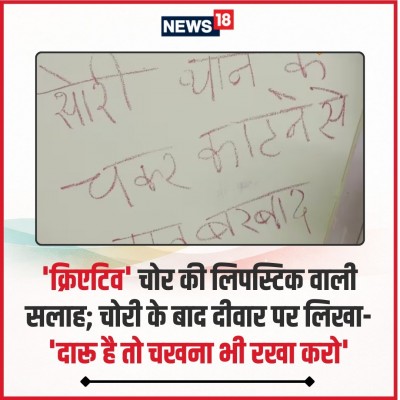 NEWS 18
सोरी थान क
चकर काटने से
बरबाद
'क्रिएटिव' चोर की लिपस्टिक वाली
सलाह; चोरी के बाद दीवार पर लिखा-
'दारू है तो चखना भी रखा करो'